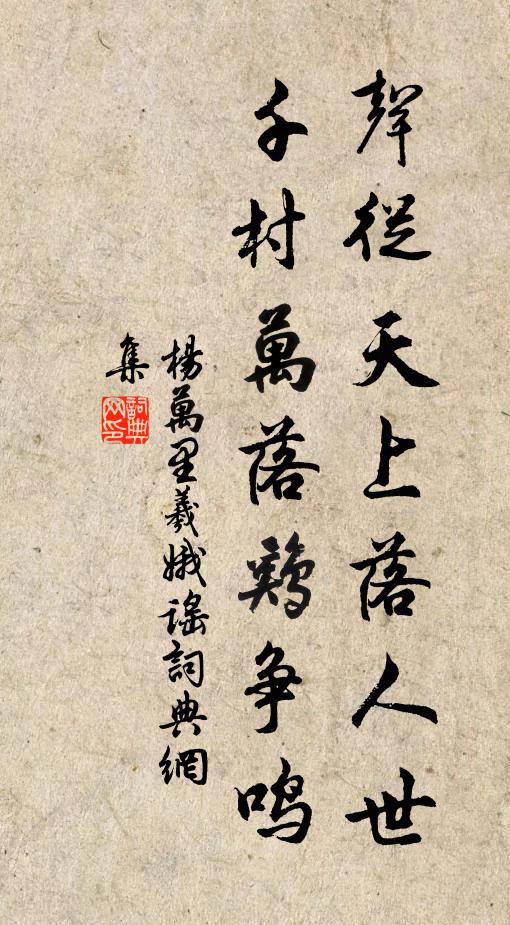 聲從天上落人世
千村萬落鷄争鳴
楊萬里羲娥謠詞典網
集
詞典
网印